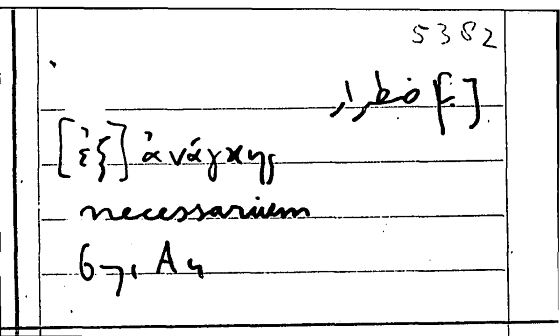 5382
[ب] ضطرار
[ἐξ] ἀνάγκης
necessarium